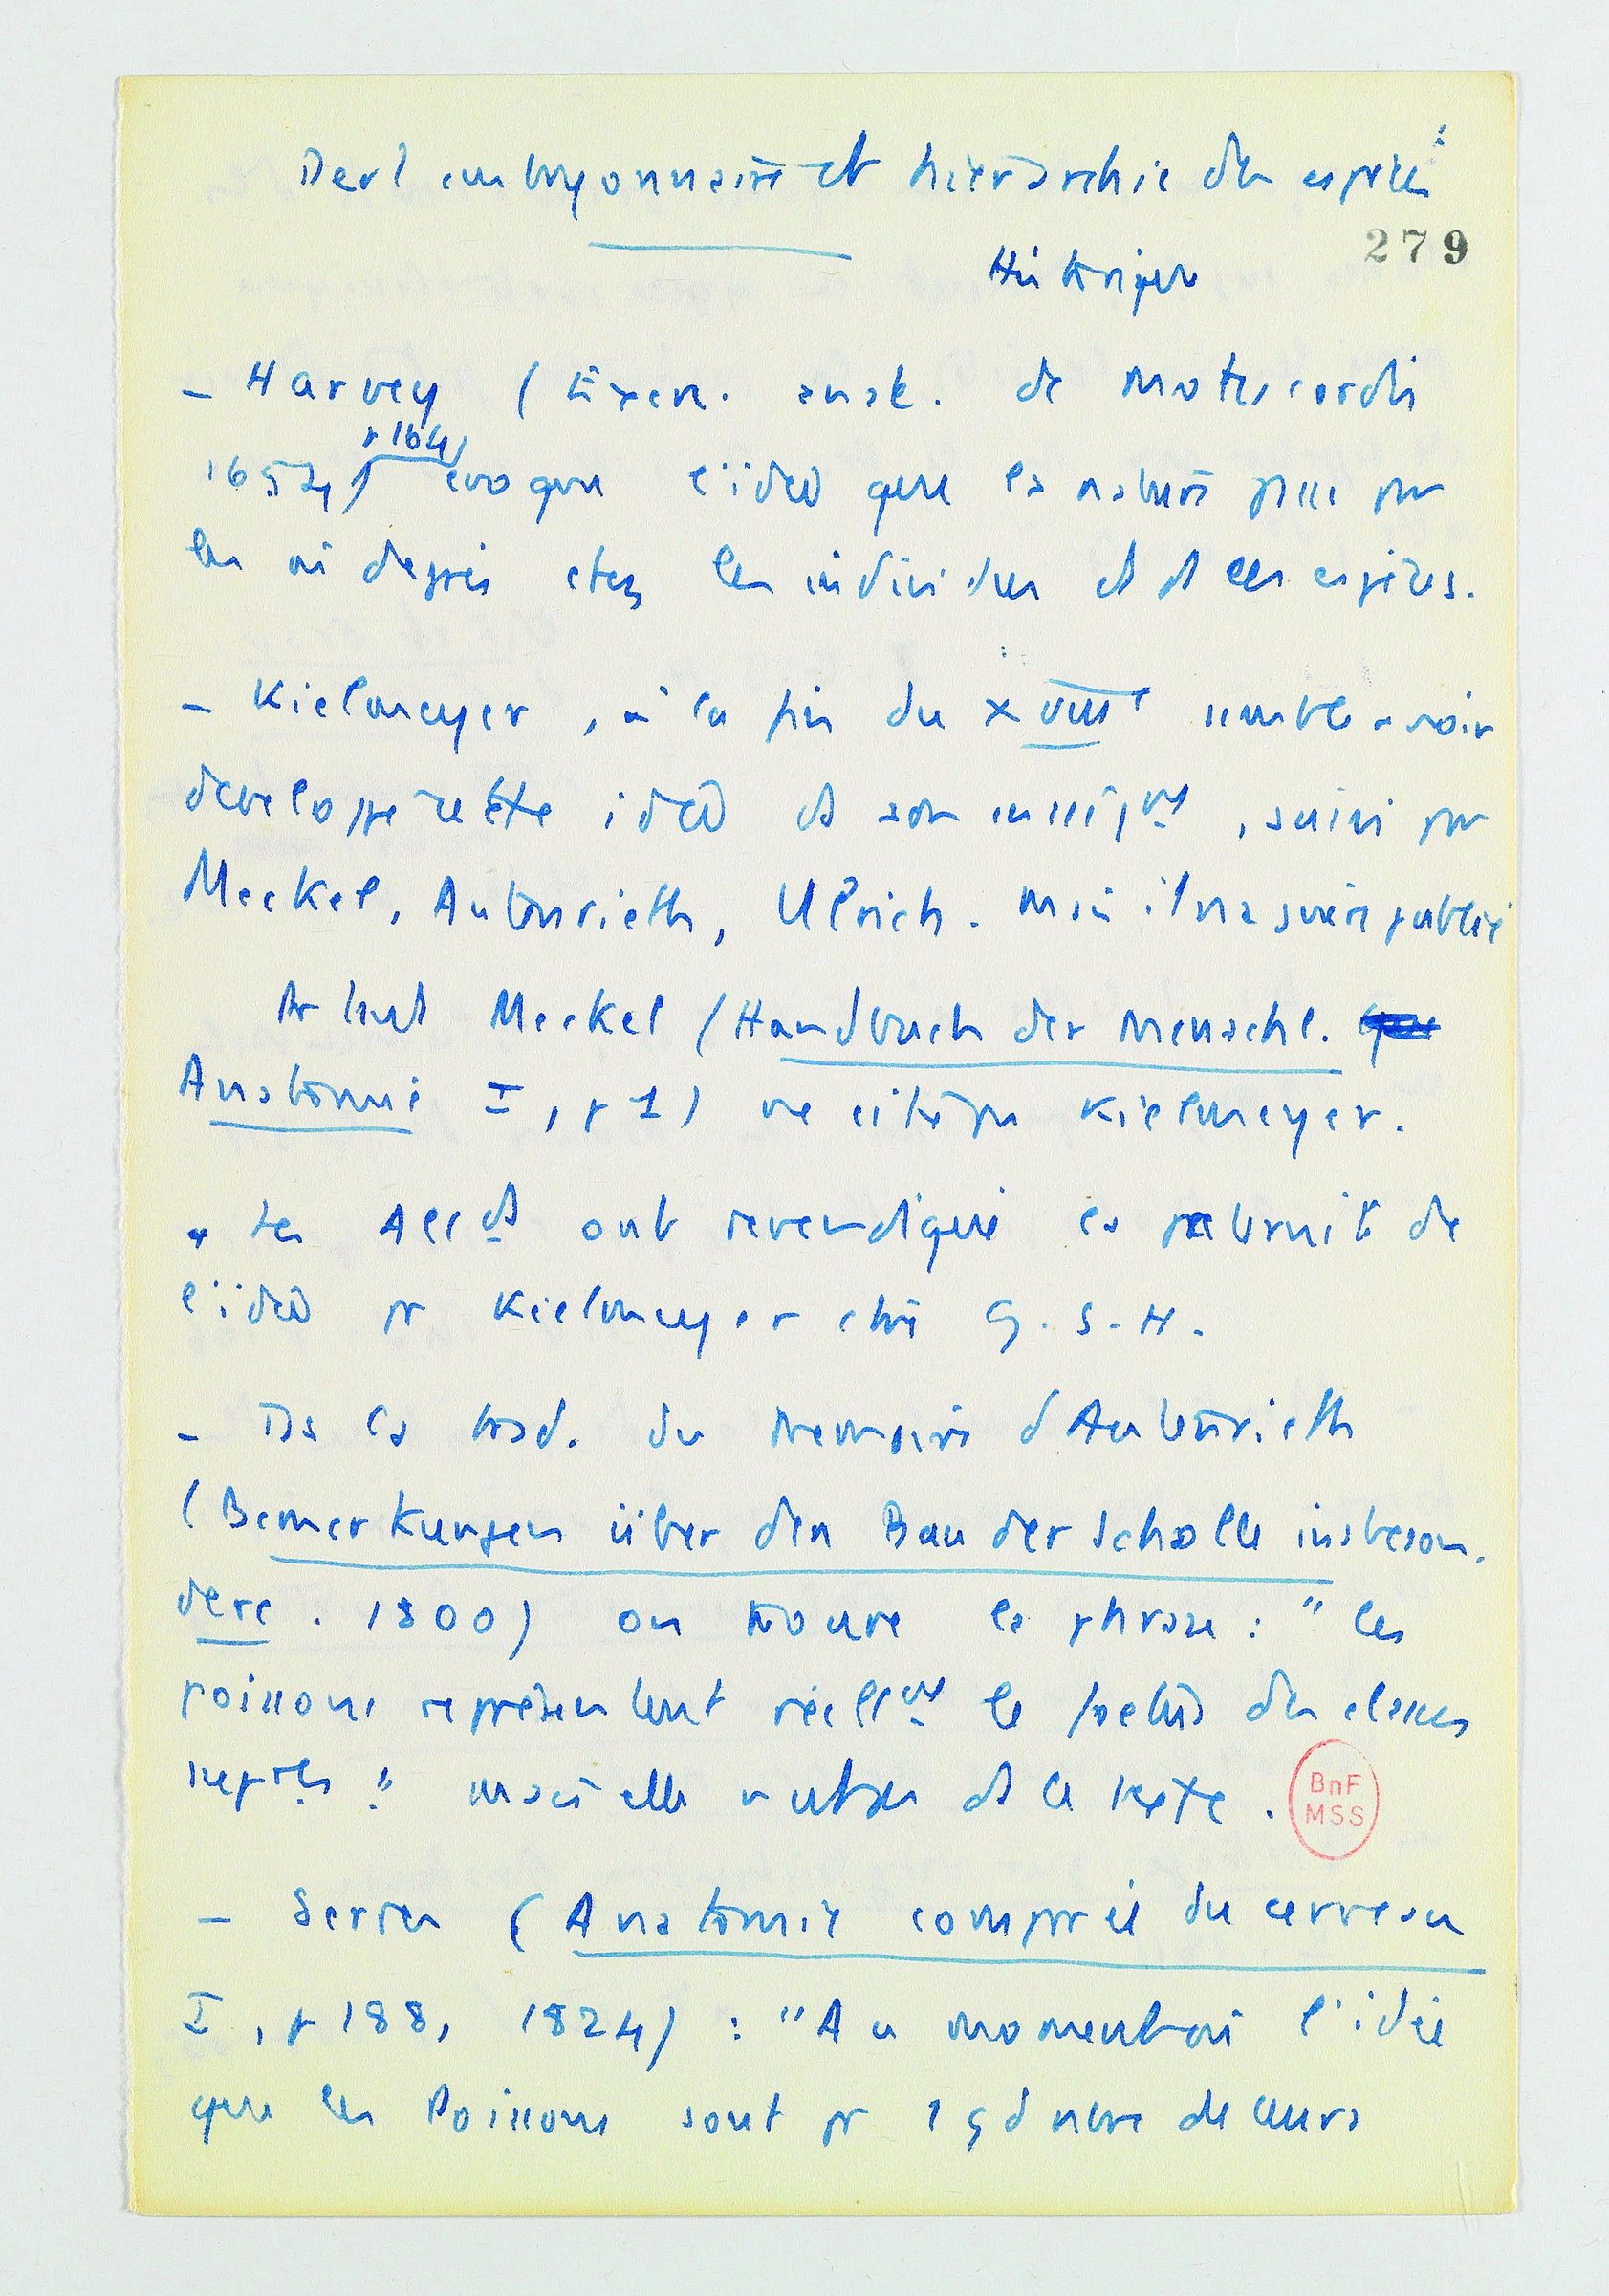 Devt embryonnaire et hiérarchie des espèces
279
Historique
- Harvey (Exerc. anat. de motu cordis
p 164
1654) evoque l'idee que la nature passe par
les mi degres chez les individus et ds les espèces.
- Kielmeyer, à la fin du XVIIIe semble avoir
developpe cette idee ds son enseigt, suivi par
Meckel, Autenrieth, Ulrich. mais il n'a jamais publié
Surtout Meckel (Handbuch der menschl.
Anatomie I, p 1) ne cite pas Kielmeyer.
Les Allds ont revendiqué la paternité de
l'idee pr Kielmeyer ctre G. S-H.
- Ds la trad. du Memoire d'Autenrieth
(Bemerkungen über den Bau der Scholle insbeson.
dere. 1800) on trouve la phrase : "les
poissons représentent réellt le foetus des classes
sup res" mais elle n'est pas ds le texte.
BnF
MSS
- Serres (Anatomie comparée du cerveau
I, p 188, 1824) : "Au moment où l'idée
que les Poissons sont pr 1 gd nbre de leurs